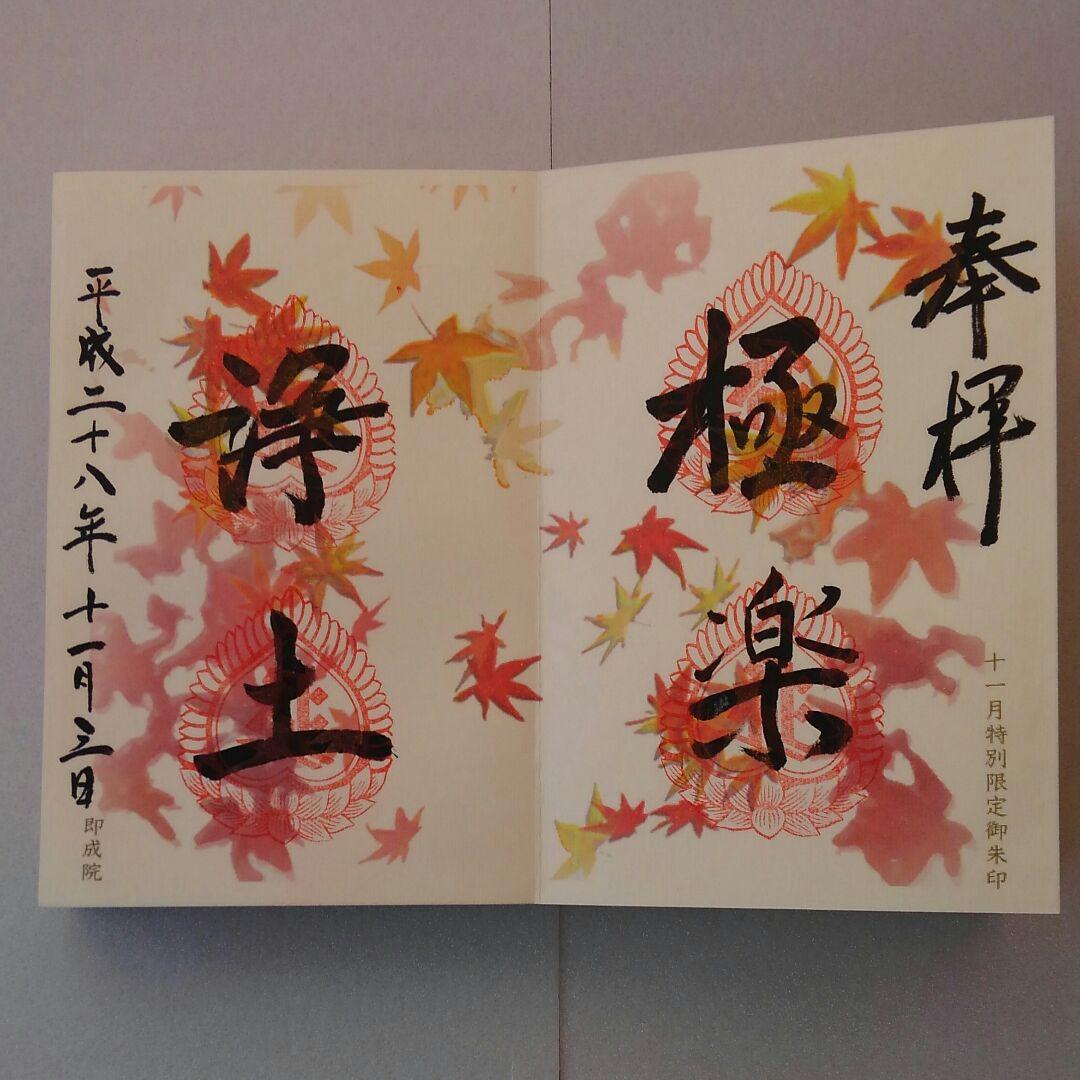 奉拝
十一月特別限定御朱印
極楽
浄土
平成二十八年十一月三日
即成院